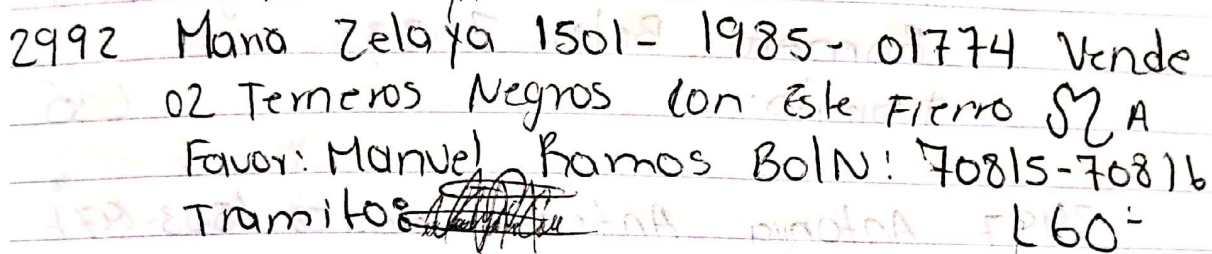 2992 Maria Zelaya 1501- 1985- 01774 Vende
02 Terneros Negros con Este Fierro A
Favor: Manuel Ramos BolN: 70815-70816
Tramito:
L60-